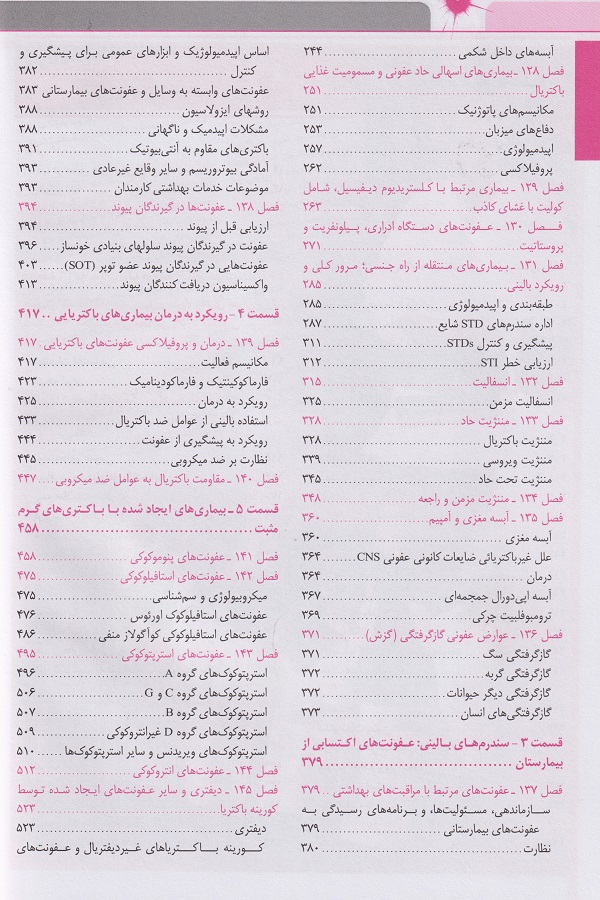 آبسه‌های داخل شکمی ........ ۲۴۴
فصل ۱۲۸ ـ بیماری‌های اسهالی حاد عفونی و مسمومیت غذایی
باکتریال ........ ۲۵۱
مکانیسم‌های پاتوژنیک ........ ۲۵۱
دفاع‌های میزبان ........ ۲۵۳
اپیدمیولوژی ........ ۲۵۷
پروفیلاکسی ........ ۲۶۲
فصل ۱۲۹ ـ بیماری مرتبط با کلستریدیوم دیفیسیل، شامل
کولیت با غشای کاذب ........ ۲۶۳
فـصل ۱۳۰ ـ عـفونت‌های دسـتگاه ادراری، پـیلونفریت و
پروستاتیت ........ ۲۷۱
فصل ۱۳۱ ـ بـیماری‌های مـنتقله از راه جـنسی؛ مـرور کـلی و
رویکرد بالینی ........ ۲۸۵
طبقه‌بندی و اپیدمیولوژی ........ ۲۸۵
اداره سندرم‌های STD شایع ........ ۲۸۷
پیشگیری و کنترل STDs ........ ۳۱۱
ارزیابی خطر STI ........ ۳۱۲
فصل ۱۳۲ ـ انسفالیت ........ ۳۱۵
انسفالیت مزمن ........ ۳۲۵
فصل ۱۳۳ ـ مننژیت حاد ........ ۳۲۸
مننژیت باکتریال ........ ۳۲۸
مننژیت ویروسی ........ ۳۳۹
مننژیت تحت حاد ........ ۳۴۵
فصل ۱۳۴ ـ مننژیت مزمن و راجعه ........ ۳۴۸
فصل ۱۳۵ ـ آبسه مغزی و آمپیم ........ ۳۶۰
آبسه مغزی ........ ۳۶۰
علل غیرباکتریائی ضایعات کانونی عفونی CNS ........ ۳۶۴
درمان ........ ۳۶۴
آبسه اپی‌دورال جمجمه‌ای ........ ۳۶۷
ترومبوفلبیت چرکی ........ ۳۶۹
فصل ۱۳۶ ـ عوارض عفونی گازگرفتگی (گزش) ........ ۳۷۱
گازگرفتگی سگ ........ ۳۷۱
گازگرفتگی گربه ........ ۳۷۲
گازگرفتگی دیگر حیوانات ........ ۳۷۲
گازگرفتگی‌های انسان ........ ۳۷۳
قسمت ۳ - سندرم‌هـای بـالینی: عـفونت‌های اکـتسابی از
بیمارستان ........ ۳۷۹
فصل ۱۳۷ ـ عفونت‌های مرتبط با مراقبت‌های بهداشتی ........ ۳۷۹
سـازماندهی، مسـئولیت‌ها، و برنامه‌های رسیدگی بـه
عفونت‌های بیمارستانی ........ ۳۷۹
نظارت ........ ۳۸۰
اساس اپیدمیولوژیک و ابزارهای عمومی برای پیشگیری و
کنترل ........ ۳۸۲
عفونت‌های وابسته به وسایل و عفونت‌های بیمارستانی ۳۸۳
روشهای ایزولاسیون ........ ۳۸۸
مشکلات اپیدمیک و ناگهانی ........ ۳۸۸
باکتری‌های مقاوم به آنتی‌بیوتیک ........ ۳۹۱
آمادگی بیوتروریسم و سایر وقایع غیرعادی ........ ۳۹۳
موضوعات خدمات بهداشتی کارمندان ........ ۳۹۳
فصل ۱۳۸ ـ عفونت‌ها در گیرندگان پیوند ........ ۳۹۴
ارزیابی قبل از پیوند ........ ۳۹۴
عفونت در گیرندگان پیوند سلولهای بنیادی خونساز ........ ۳۹۶
عفونت‌هایی در گیرندگان پیوند عضو توپر (SOT) ........ ۴۰۳
واکسیناسیون دریافت کنندگان پیوند ........ ۴۱۳
قسمت ۴ - رویکرد به درمان بیماری‌های باکتریایی .. ۴۱۷
فصل ۱۳۹ ـ درمان و پروفیلاکسی عفونت‌های باکتریایی ۴۱۷
مکانیسم فعالیت ........ ۴۱۷
فارماکوکینتیک و فارماکودینامیک ........ ۴۲۳
رویکرد به درمان ........ ۴۲۵
استفاده بالینی از عوامل ضد باکتریال ........ ۴۳۳
رویکرد به پیشگیری از عفونت ........ ۴۴۴
نظارت بر ضد میکروبی ........ ۴۴۵
فصل ۱۴۰ ـ مقاومت باکتریال به عوامل ضد میکروبی ........ ۴۴۷
قسمت ۵ ـ بیماری‌های ایجاد شده با بـاکـتری‌های گـرم
مثبت ........ ۴۵۸
فصل ۱۴۱ ـ عفونت‌های پنوموکوکی ........ ۴۵۸
فصل ۱۴۲ ـ عفونت‌های استافیلوکوکی ........ ۴۷۵
میکروبیولوژی و سم‌شناسی ........ ۴۷۵
عفونت‌های استافیلوکوک اورئوس ........ ۴۷۶
عفونت‌های استافیلوکوکی کوآگولاز منفی ........ ۴۸۶
فصل ۱۴۳ ـ عفونت‌های استرپتوکوکی ........ ۴۹۵
استرپتوکوک‌های گروه A ........ ۴۹۶
استرپتوکوک‌های گروه C و G ........ ۵۰۶
استرپتوکوک‌های گروه B ........ ۵۰۷
استرپتوکوک‌های گروه D غیرانتروکوکی ........ ۵۰۹
استرپتوکوک‌های ویریدنس و سایر استرپتوکوک‌ها ........ ۵۱۰
فصل ۱۴۴ ـ عفونت‌های انتروکوکی ........ ۵۱۲
فصل ۱۴۵ ـ دیفتری و سایر عـفونت‌های ایـجاد شـده تـوسط
کورینه باکتریا ........ ۵۲۳
دیفتری ........ ۵۲۳
کـورینه بـاکـتریاهای غیردیفتریال و عـفونت‌های